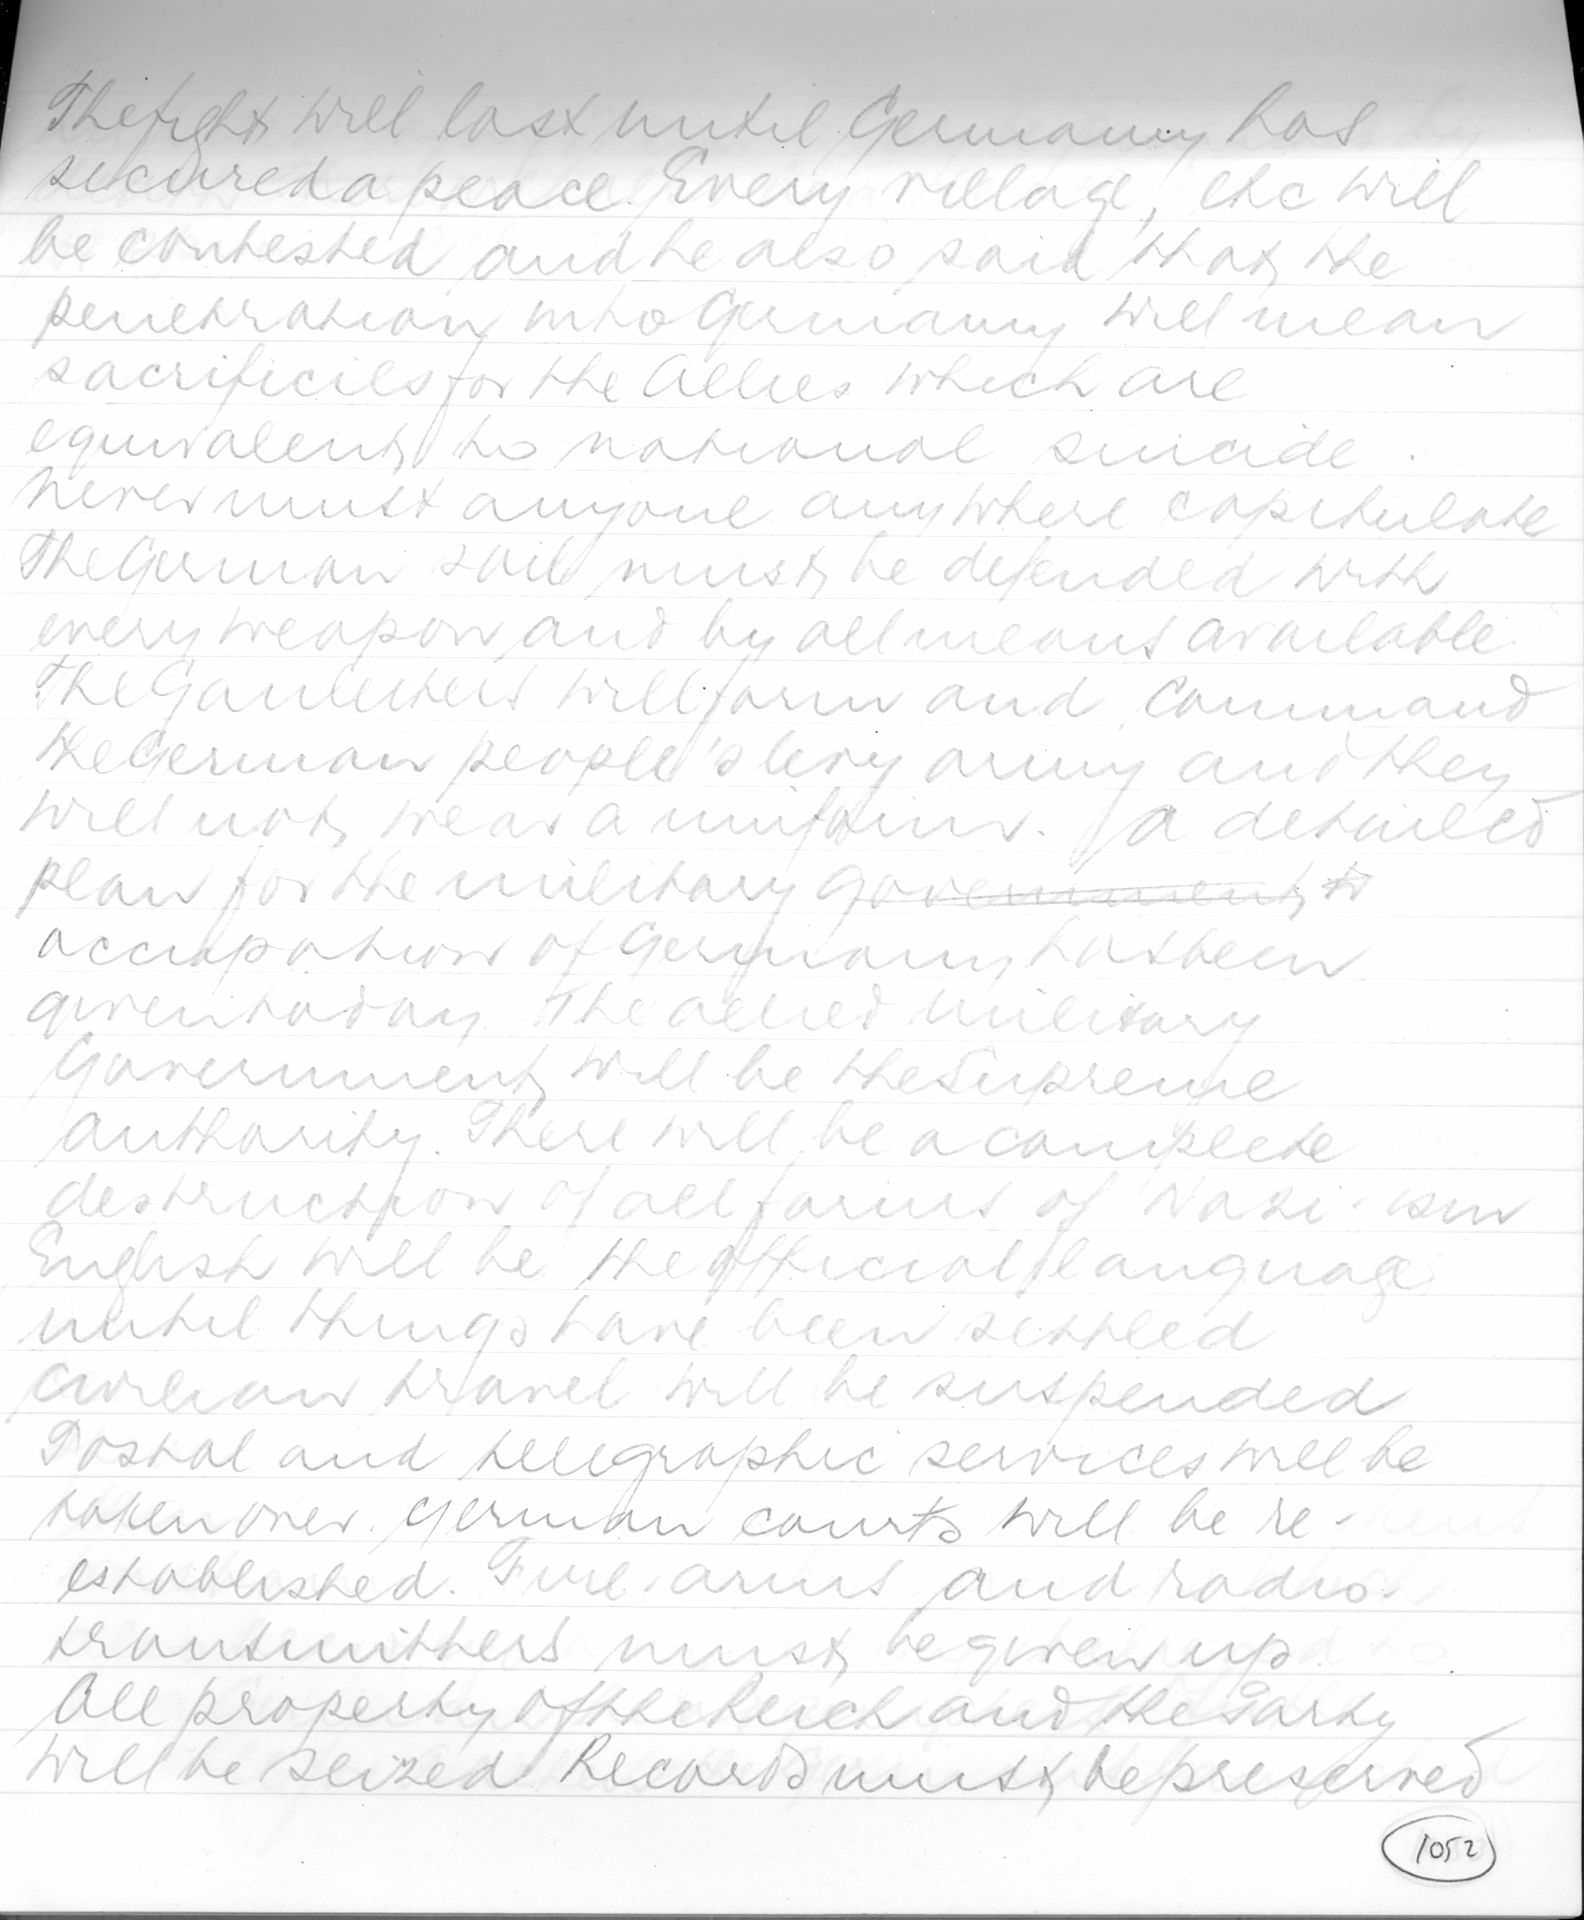 The fight will last until Germany has
secured a peace. Every village, etc will
be contested and he also said that the
penetration into Germany will mean
sacrificies for the Allies which are
equivalent to national suicide.
Never must anyone anywhere capitulate
The German soil must be defended with
every weapon and by all means available
The Gauleiters will form and command
the German people's levy army and they
will not wear a uniform. A detailed
plan for the military government to
occupation of Germany has been
given today. The allied military
Government will be the Supreme
authority. There will be a complete
destruction of all forms of Nazi-ism
English will be the official language
until things have been settled
civilian travel will be suspended
Postal and telegraphic services will be
taken over. German courts will be re-
established. Fire-arms and radio-
transmitters must be given up.
All property of the Reich and the Party
will be seized Records must be preserved
1052